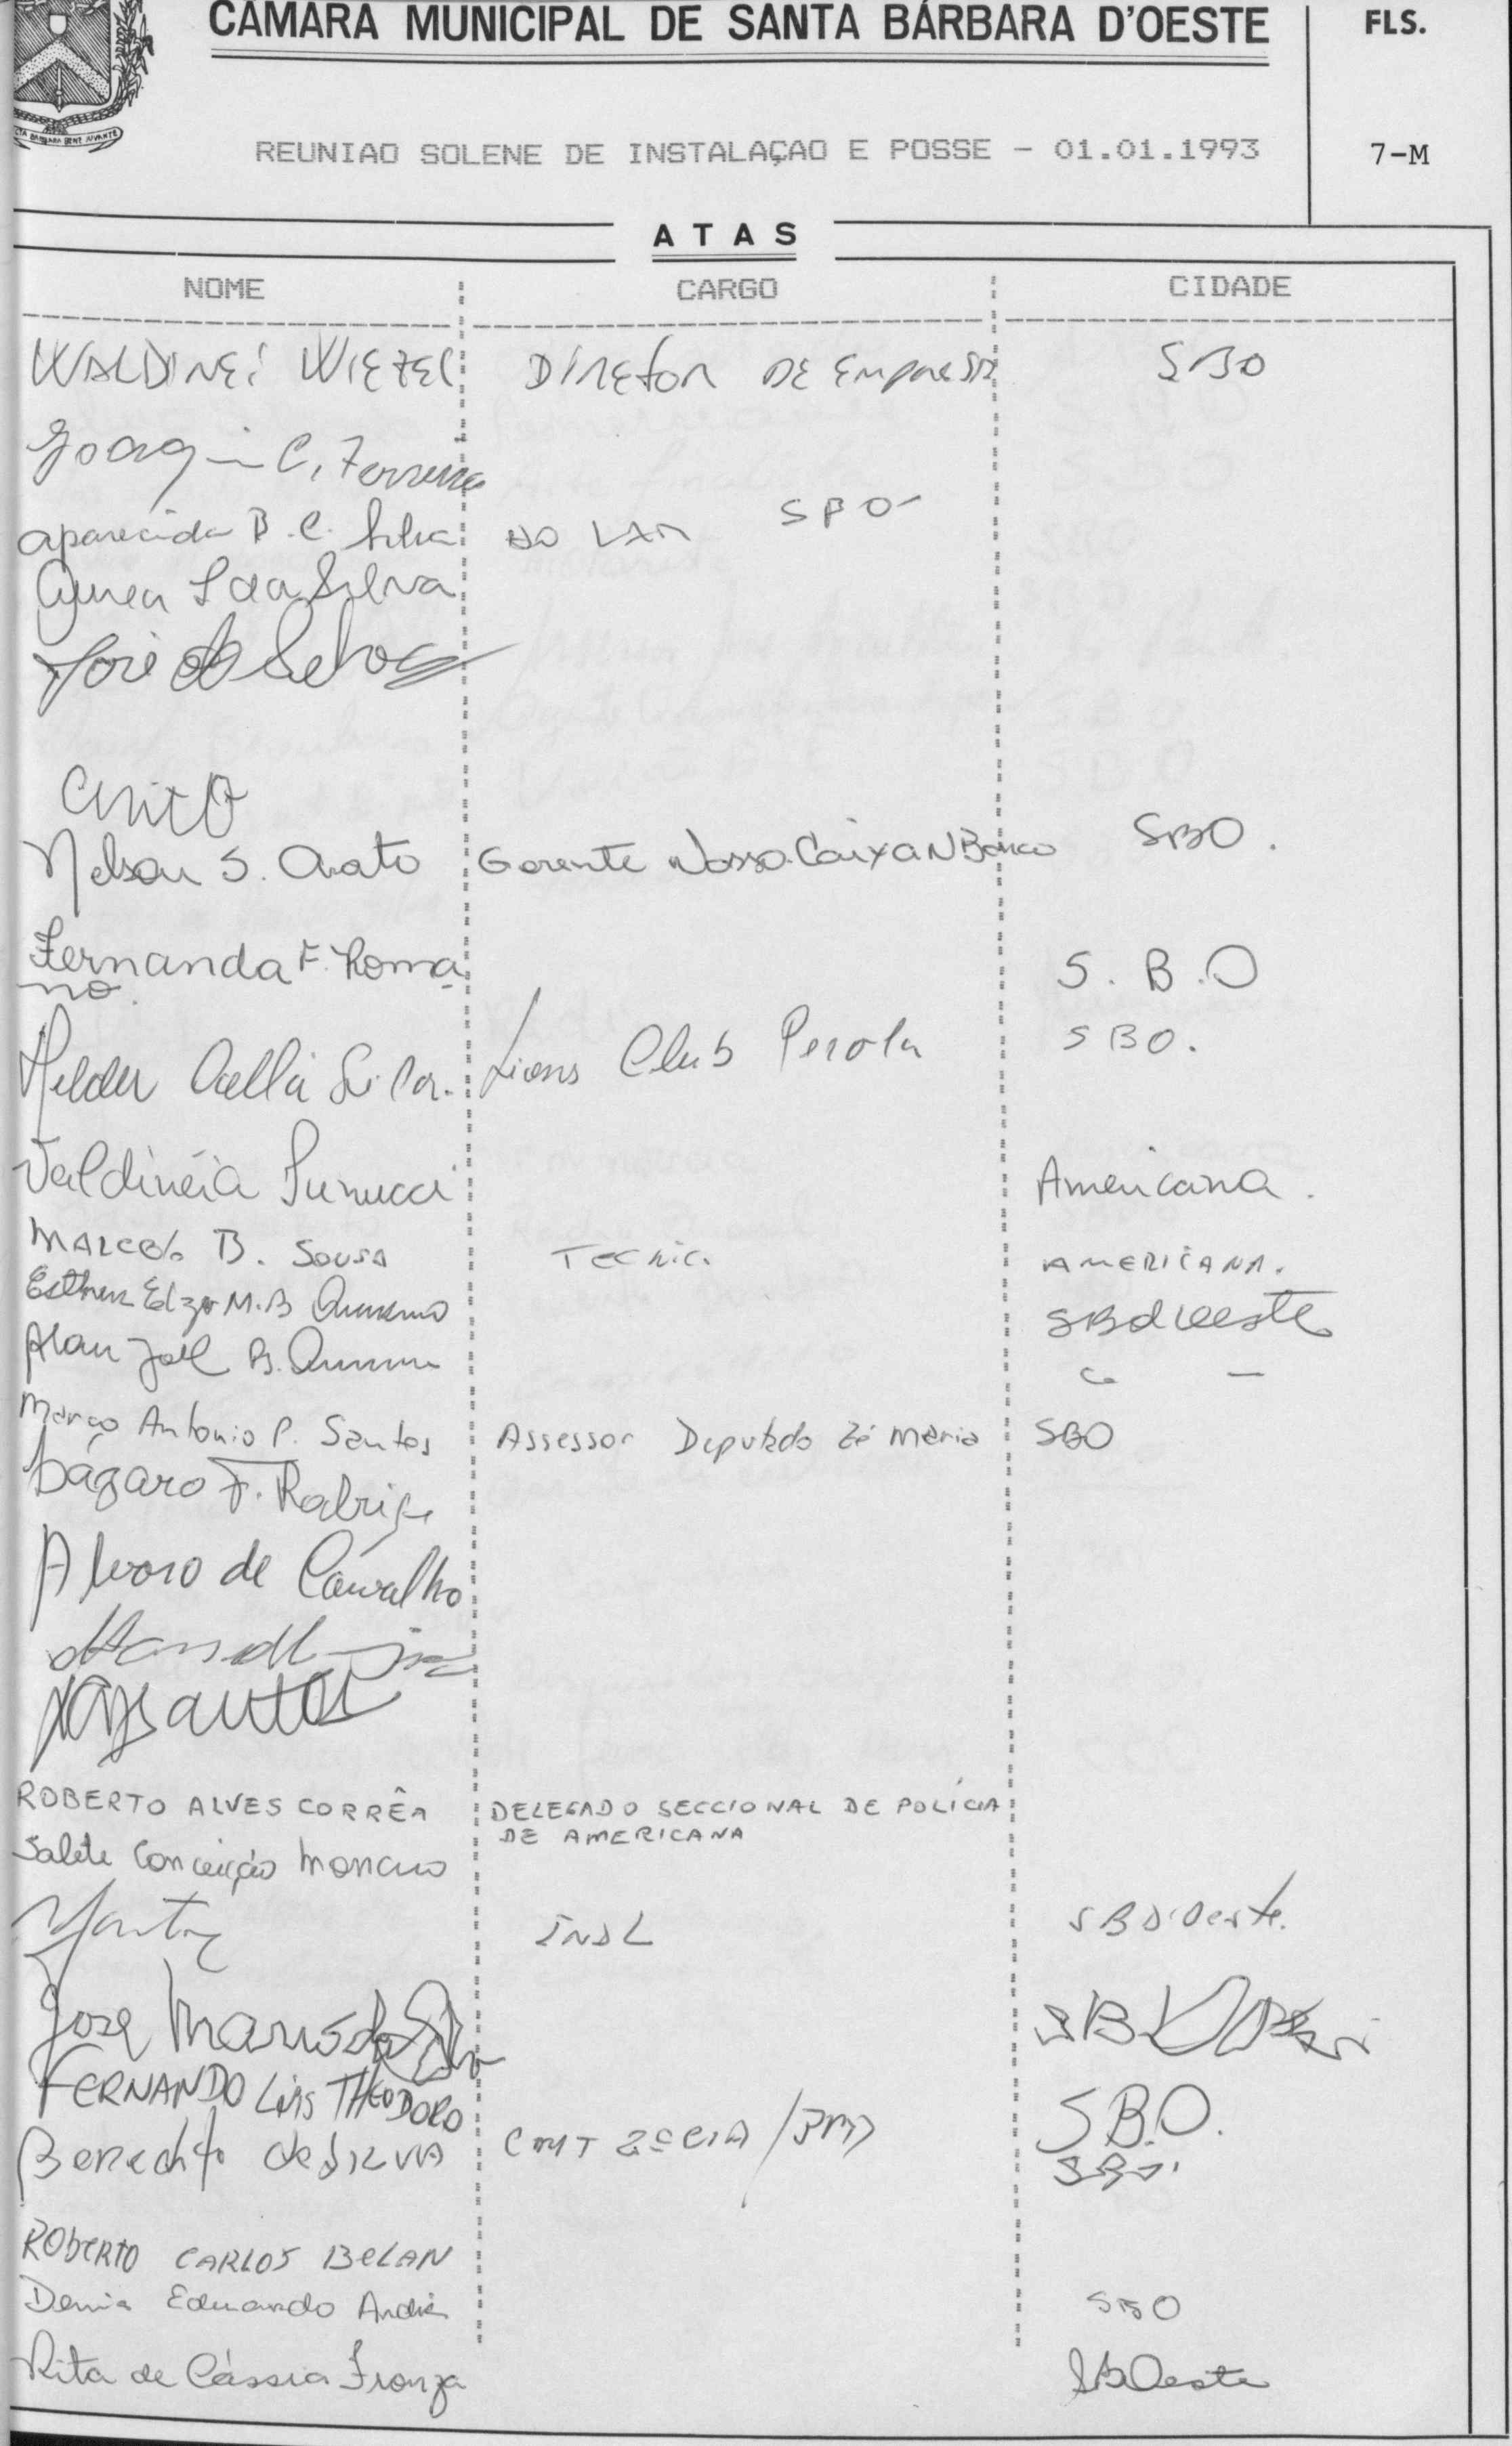 CÂMARA MUNICIPAL DE SANTA BÁRBARA D'OESTE
FLS.
REUNIAO SOLENE DE INSTALAÇAO E POSSE - 01.01.1993
7-M
ATAS
NOME CARGO CIDADE
WALDINEI WIEZEL DIRETOR DE EMPRESA SBO
Joaquin C. Ferreira
Aparecida B. C. Silva DO LAR SBO
Aurea S da Silva
José da Silva
Nelson S. Arato Gerente Nossa Caixa N Banco SBO.
Fernanda F. Roma
no. S. B. O
Helder Calla Silva. Lions Club Perola SBO.
Valdinéia Americana.
MARCELO B. SOUSA Tecnic. AMERICANA.
Esther Elza M. B. SBd'oeste
Alan Joel B.
Marco Antonio P. Santos Assessor Deputado Zé Maria SBO
Lázaro F. Rodrigues
Alvaro de Carvalho
ROBERTO ALVES CORRÊA DELEGADO SECCIONAL DE POLÍCIA
DE AMERICANA
Salete Conceição
INDL SBD'Oeste.
José da Silva
FERNANDO LUIS THEODORO S.B.O.
Benedito de SILVA CMT 2ª CIA / SBO
ROBERTO CARLOS BELAN
Eduardo André SBO
Rita de Cássia Fronza SBOeste